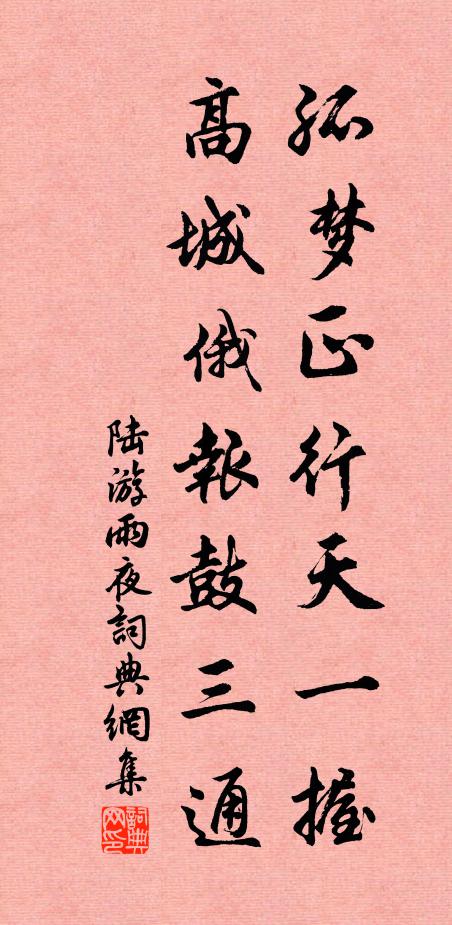 孤梦正行天一握
高城俄報鼓三通
陆游雨夜詞典網集
詞典网印